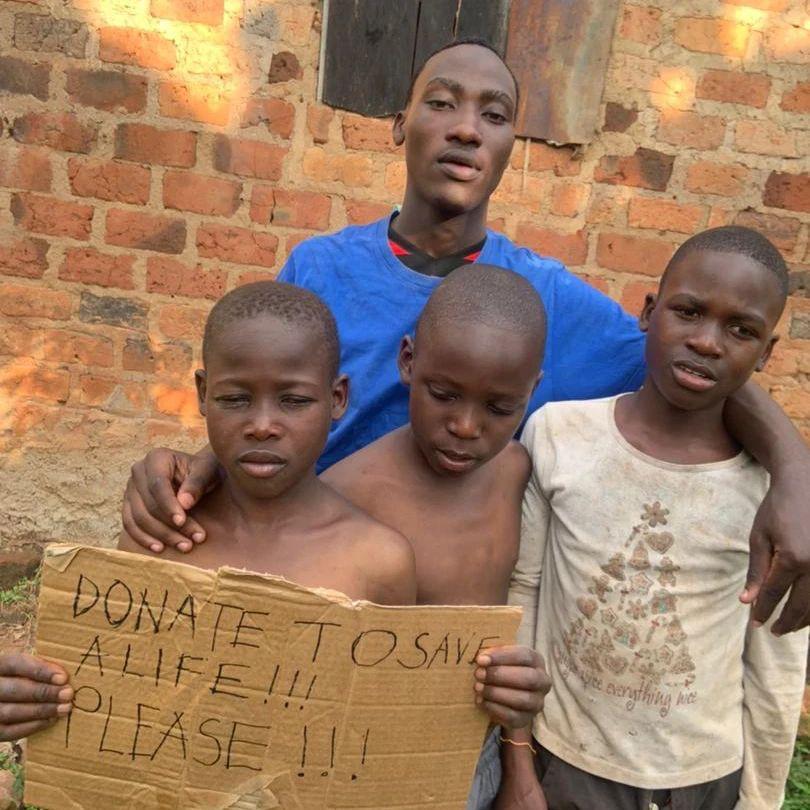 DONATE TO SAVE
A LIFE!!!
PLEASE !!!
everything nice